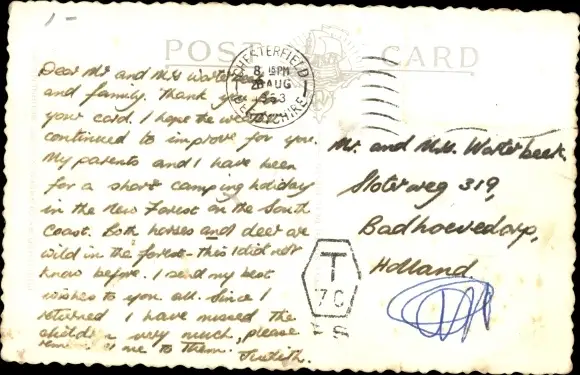 1-
POST CARD
CHESTERFIELD
8 15 PM
AUG
DERBYSHIRE
Dear Mr and Mrs Waterbeek
and family. Thank you for
your card. I hope the weather
continued to improve for you.
My parents and I have been
for a short camping holiday
in the New Forest on the South
Coast. Both horses and deer are
wild in the forest - this I did not
know before. I send my best
wishes to you all. Since I
returned I have missed the
children very much, please
remember me to them.
Judith.
Mr. and Mrs. Waterbeek,
Sloterweg 319,
Badhoevedorp,
Holland.
T
70